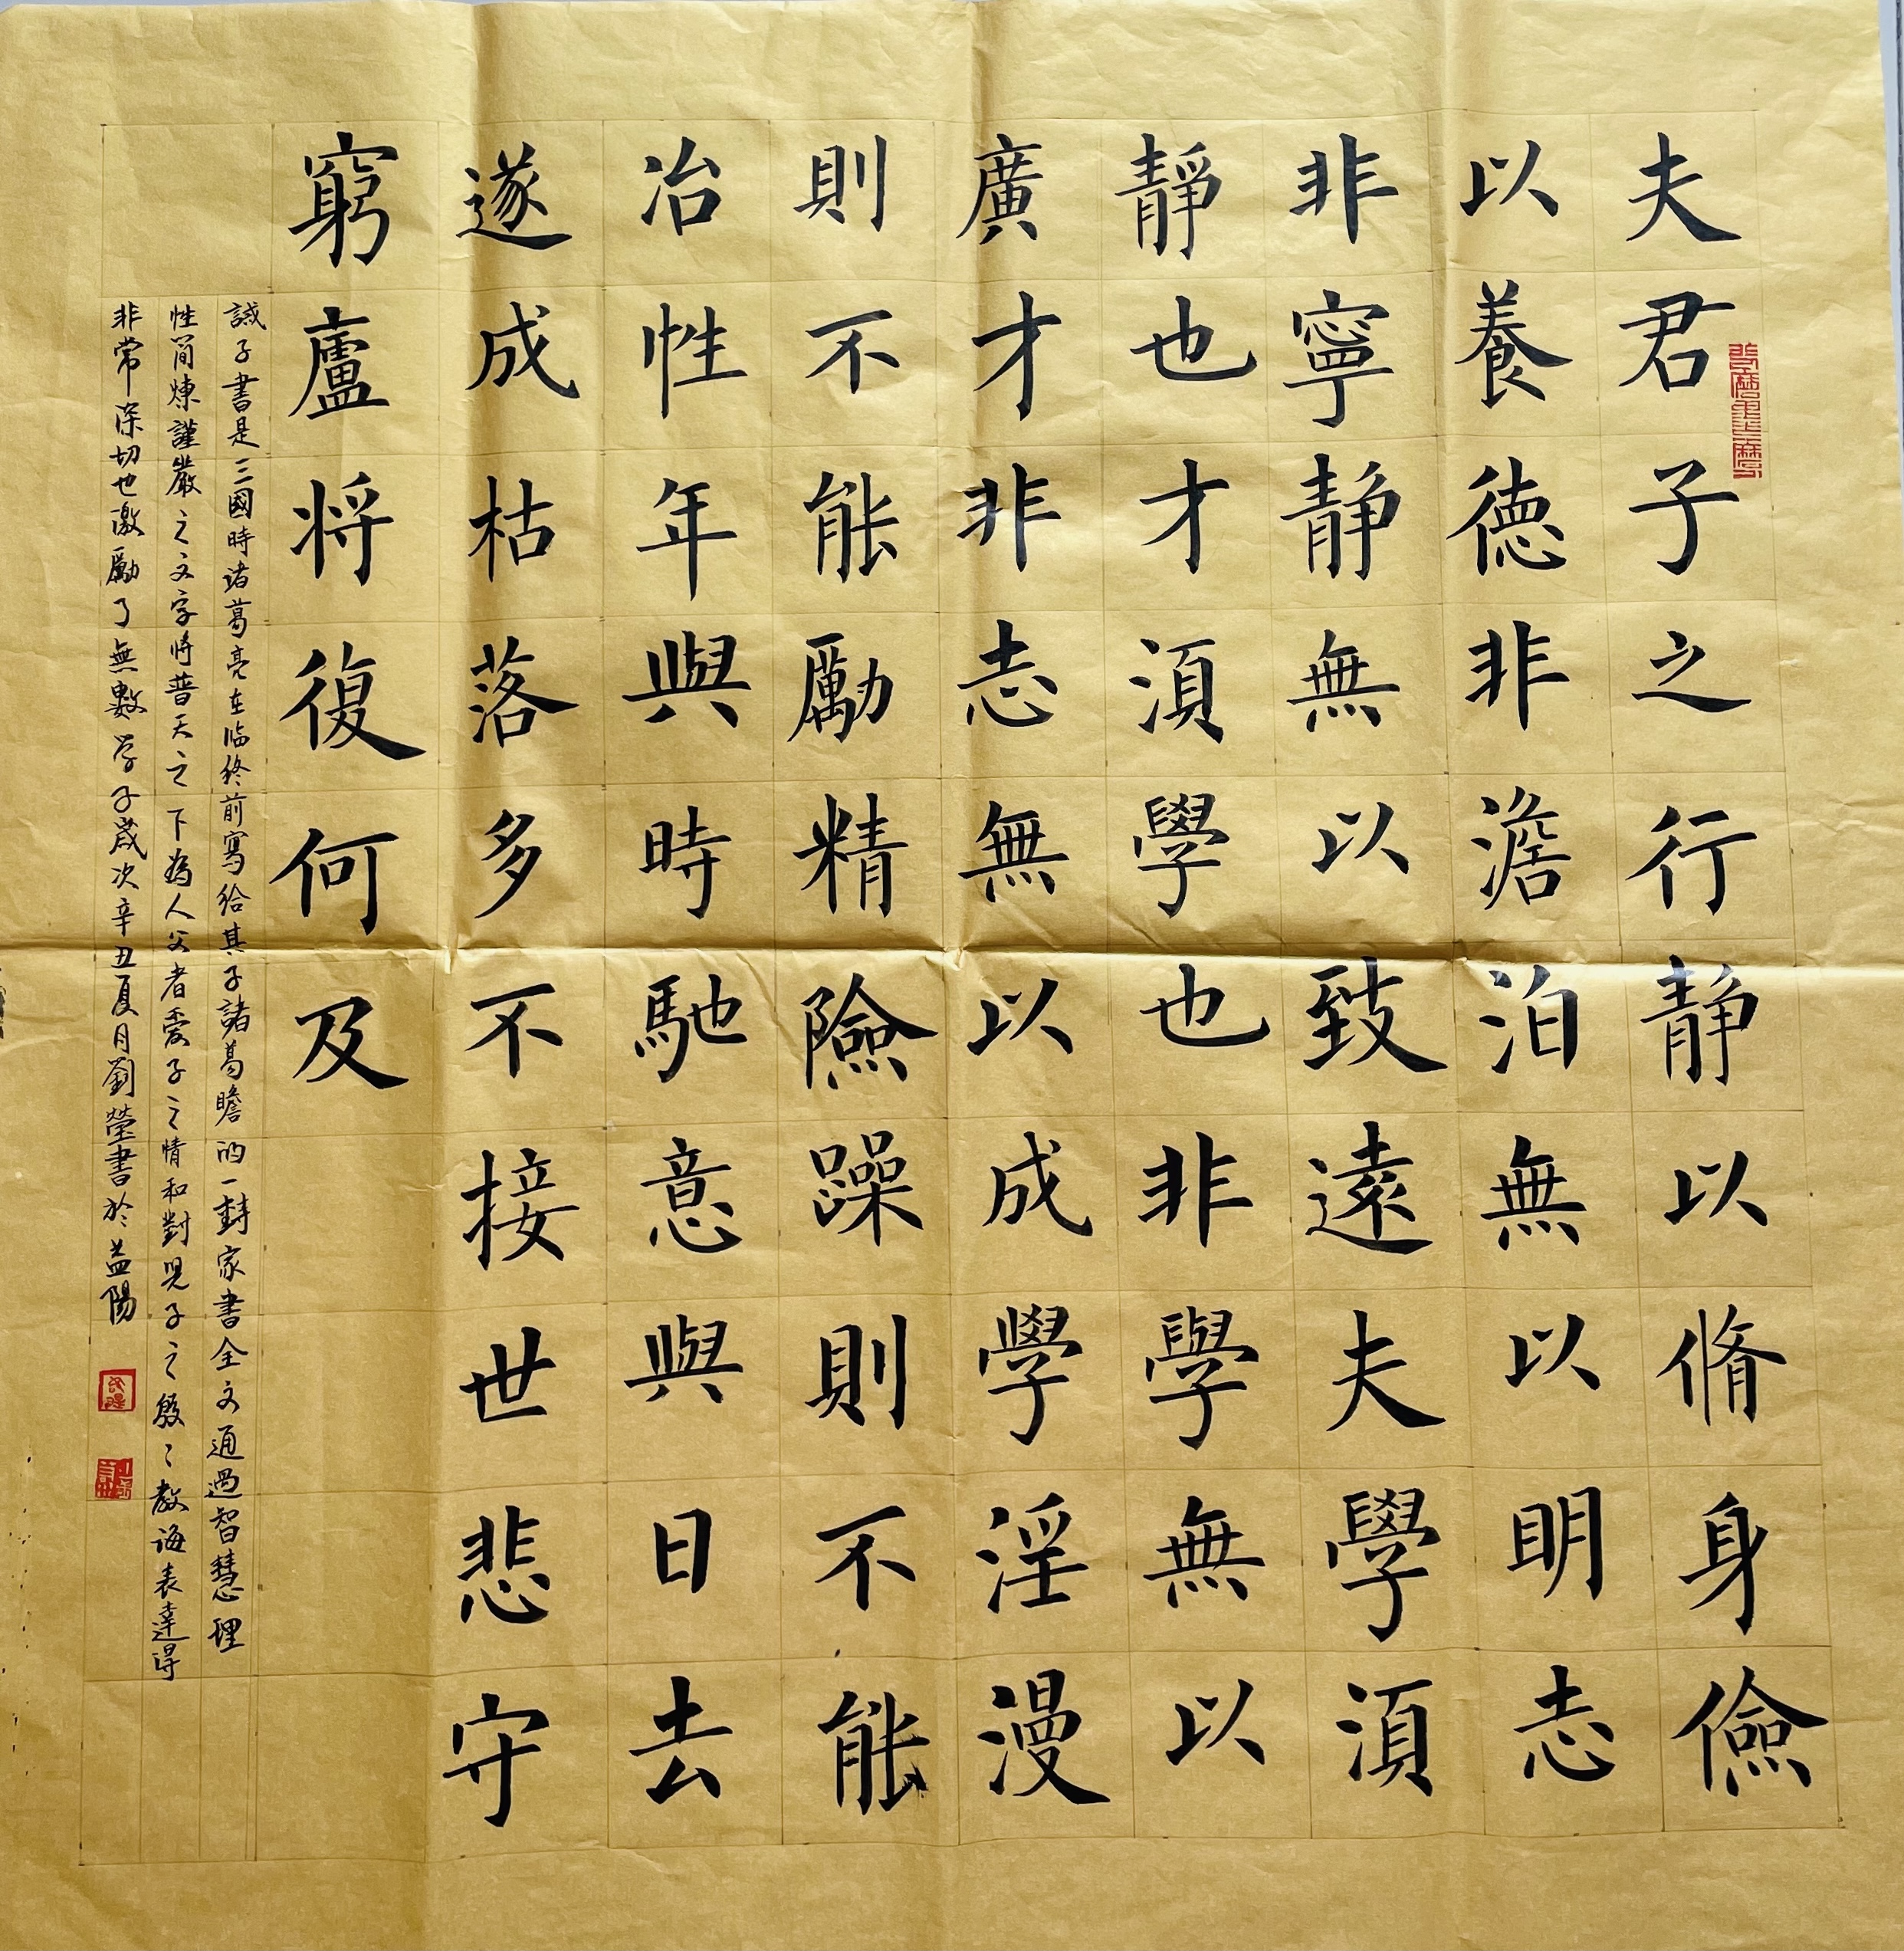 夫君子之行静以脩身儉
以養德非澹泊無以明志
非寧静無以致遠夫學湏
靜也才湏學也非學無以
廣才非志無以成學淫漫
則不能勵精險躁則不能
冶性年與時馳意與日去
遂成枯落多不接世悲守
窮廬将復何及
誡子書是三國時诸葛亮在临终前寫给其子諸葛瞻的一封家書全文通過智慧理
性简煉謹嚴之文字将普天之下為人父者愛子之情和對児子之殷〻教诲表達得
非常深切也激勵了無數学子歲次辛丑夏月劉瑩書於益陽